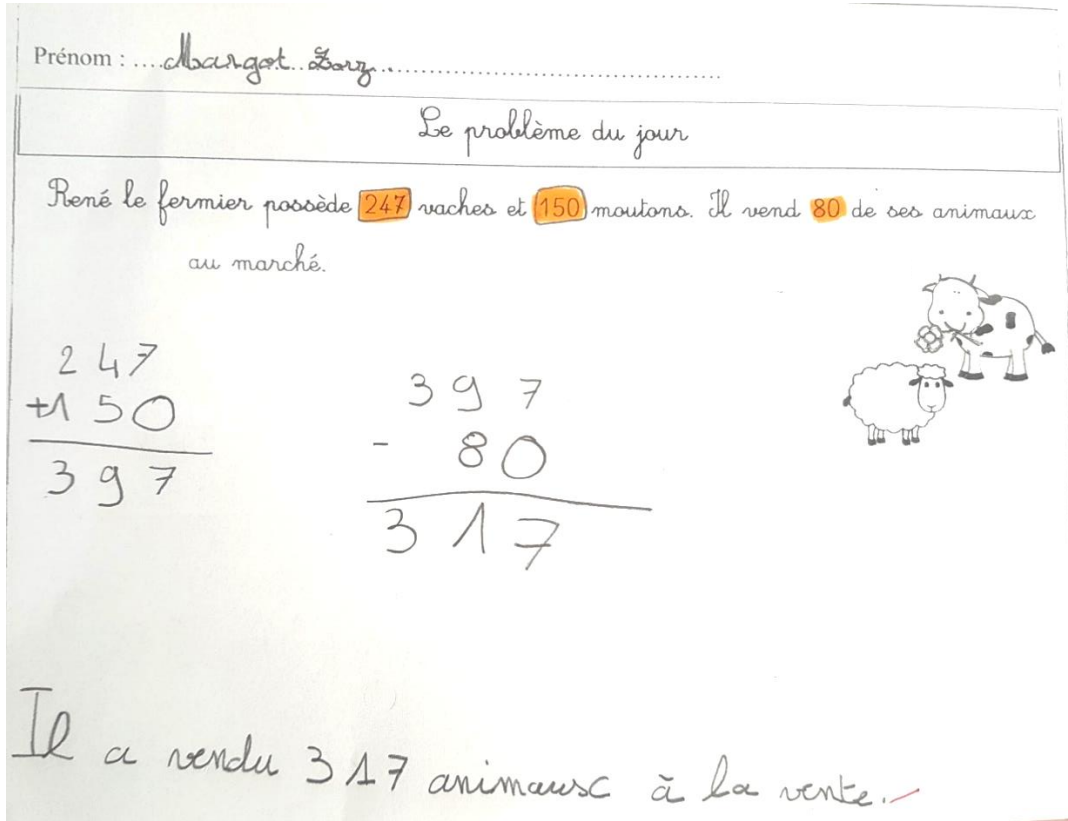 Prénom : ....Margot..Zorz...............................................
Le problème du jour
René le fermier possède 247 vaches et 150 moutons. Il vend 80 de ses animaux
au marché.
247
+150
397
397
- 80
317
Il a vendu 317 animaux à la vente.